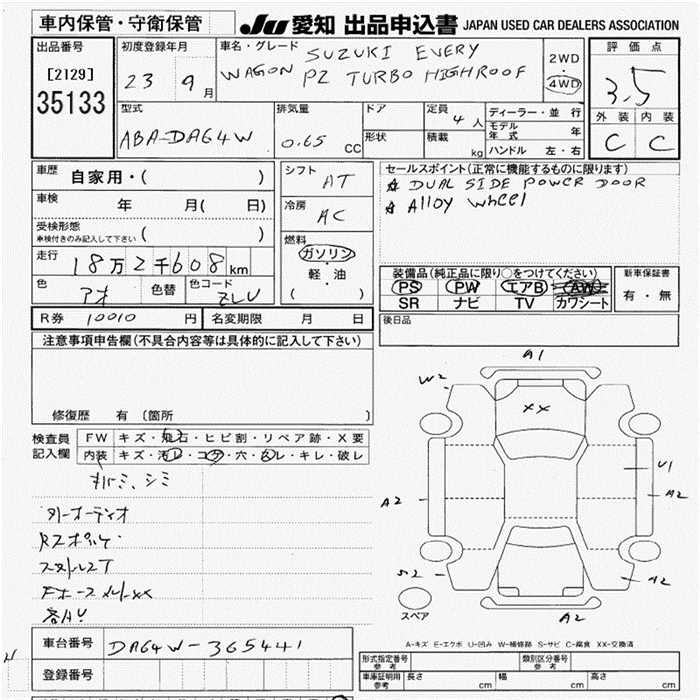 車内保管・守衛保管
JU 愛知 出品申込書 JAPAN USED CAR DEALERS ASSOCIATION
出品番号
[2129]
35133
初度登録年月
23 9月
車名・グレード
SUZUKI EVERY
WAGON PZ TURBO HIGHROOF
2WD
・
4WD
評価点
3.5
外装 内装
C C
型式
ABA-DA64W
排気量
0.65 CC
ドア
形状
定員 4人
積載 kg
ディーラー・並行
モデル年式 年
ハンドル 左・右
車歴 自家用・( )
車検 年 月( 日)
受検形態
車検付きのみ記入して下さい ( )
走行 18万2千608km
色 アオ 色替 色コード ZLU
シフト AT
冷房 AC
燃料
ガソリン
・
軽・油
( )
セールスポイント(正常に機能するものに限ります)
☆ DUAL SIDE POWER DOOR
☆ Alloy wheel
装備品(純正品に限り○をつけてください)
PS PW エアB AW
SR ナビ TV カワシート
新車保証書
有・無
R券 10010 円 名変期限 月 日
後日品
注意事項申告欄(不具合内容等は具体的に記入して下さい)
修復歴 有 〔箇所 〕
検査員
記入欄
FW キズ・飛石・ヒビ割・リペア跡・X要
内装 キズ・汚レ・コゲ・穴・スレ・キレ・破レ
シミ
A1
W2
XX
U1
A2
A2
S2
A2
A2
スペア
A-キズ E-エクボ U-凹み W-補修跡 S-サビ C-腐食 XX-交換済
車台番号 DA64W-365441
登録番号
形式指定番号
参考
類別区分番号
参考
車庫証明用
参考
長さ cm 幅 cm 高さ cm